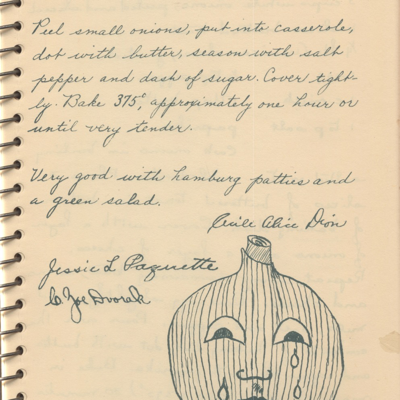 Peel small onions, put into casserole,
dot with butter, season with salt
pepper and dash of sugar. Cover tight-
ly. Bake 375°, approximately one hour or
until very tender.
Very good with hamburg patties and
a green salad.
Cecile Alice Dion
Jessie L Paquette
% Zoe Dvorak